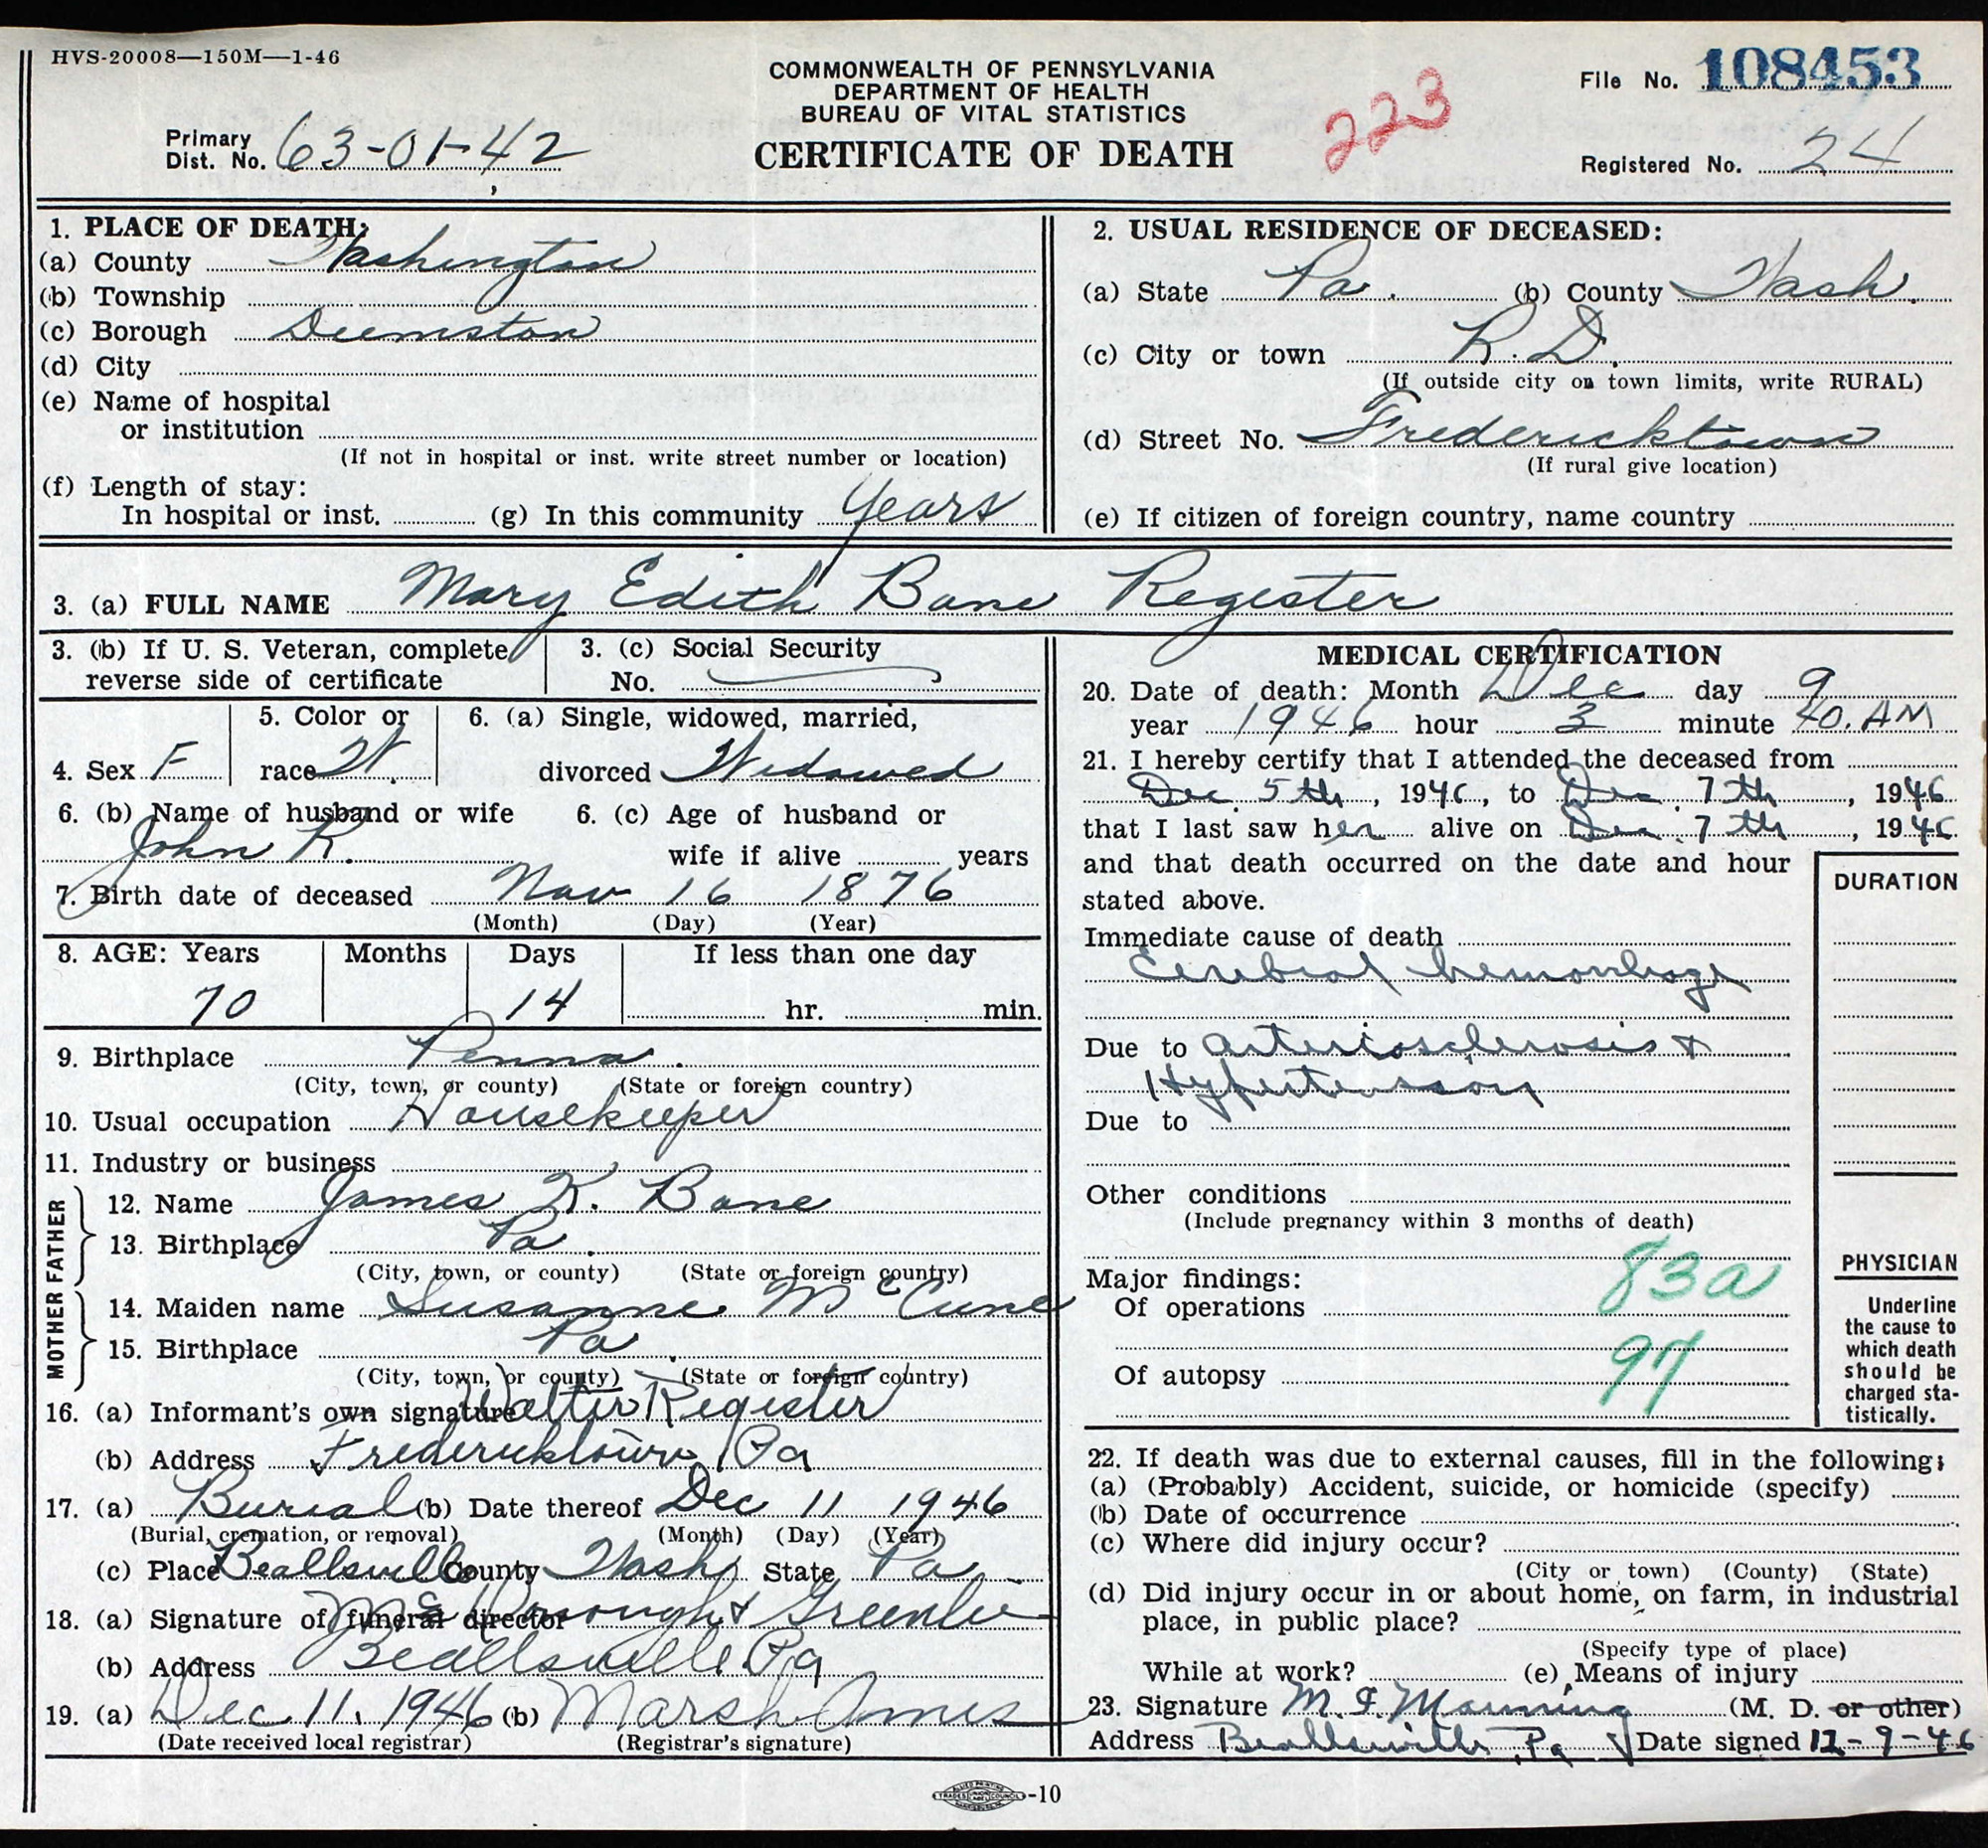 HVS-20008—150M—1-46
COMMONWEALTH OF PENNSYLVANIA
DEPARTMENT OF HEALTH
BUREAU OF VITAL STATISTICS
CERTIFICATE OF DEATH
223
File No. 108453
Primary
Dist. No. 63-01-42
Registered No. 24
1. PLACE OF DEATH:
(a) County Washington
(b) Township
(c) Borough Deemston
(d) City
(e) Name of hospital
or institution
(If not in hospital or inst. write street number or location)
(f) Length of stay:
In hospital or inst. (g) In this community Years
2. USUAL RESIDENCE OF DECEASED:
(a) State Pa. (b) County Wash.
(c) City or town R.D.
(If outside city or town limits, write RURAL)
(d) Street No. Fredericktown
(If rural give location)
(e) If citizen of foreign country, name country
3. (a) FULL NAME Mary Edith Bane Register
3. (b) If U. S. Veteran, complete
reverse side of certificate
3. (c) Social Security
No.
4. Sex F
5. Color or
race W.
6. (a) Single, widowed, married,
divorced Widowed
6. (b) Name of husband or wife
John R.
6. (c) Age of husband or
wife if alive years
7. Birth date of deceased Nov 16 1876
(Month) (Day) (Year)
8. AGE: Years Months Days If less than one day
70 14 hr. min.
9. Birthplace Penna.
(City, town, or county) (State or foreign country)
10. Usual occupation Housekeeper
11. Industry or business
FATHER
12. Name James K. Bane
13. Birthplace Pa.
(City, town, or county) (State or foreign country)
MOTHER
14. Maiden name Susanne McCune
15. Birthplace Pa.
(City, town, or county) (State or foreign country)
16. (a) Informant's own signature Walter Register
(b) Address Fredericktown, Pa
17. (a) Burial (b) Date thereof Dec 11 1946
(Burial, cremation, or removal) (Month) (Day) (Year)
(c) Place Beallsville County Wash. State Pa
18. (a) Signature of funeral director & Greenlee
(b) Address Beallsville Pa
19. (a) Dec. 11. 1946 (b) Marsh Ames
(Date received local registrar) (Registrar's signature)
MEDICAL CERTIFICATION
20. Date of death: Month Dec day 9
year 1946 hour 3 minute 40. AM
21. I hereby certify that I attended the deceased from
Dec. 5th, 1946, to Dec. 7th, 1946
that I last saw her alive on Dec. 7th, 1946
and that death occurred on the date and hour
stated above.
DURATION
Immediate cause of death
Cerebral hemorrhage
Due to arteriosclerosis &
Hypertension
Due to
Other conditions
(Include pregnancy within 3 months of death)
Major findings:
Of operations
83a
Of autopsy
97
PHYSICIAN
Underline
the cause to
which death
should be
charged sta-
tistically.
22. If death was due to external causes, fill in the following:
(a) (Probably) Accident, suicide, or homicide (specify)
(b) Date of occurrence
(c) Where did injury occur?
(City or town) (County) (State)
(d) Did injury occur in or about home, on farm, in industrial
place, in public place?
(Specify type of place)
While at work? (e) Means of injury
23. Signature M. F. Manning (M. D. or other)
Address Beallsville, Pa Date signed 12-9-46
-10